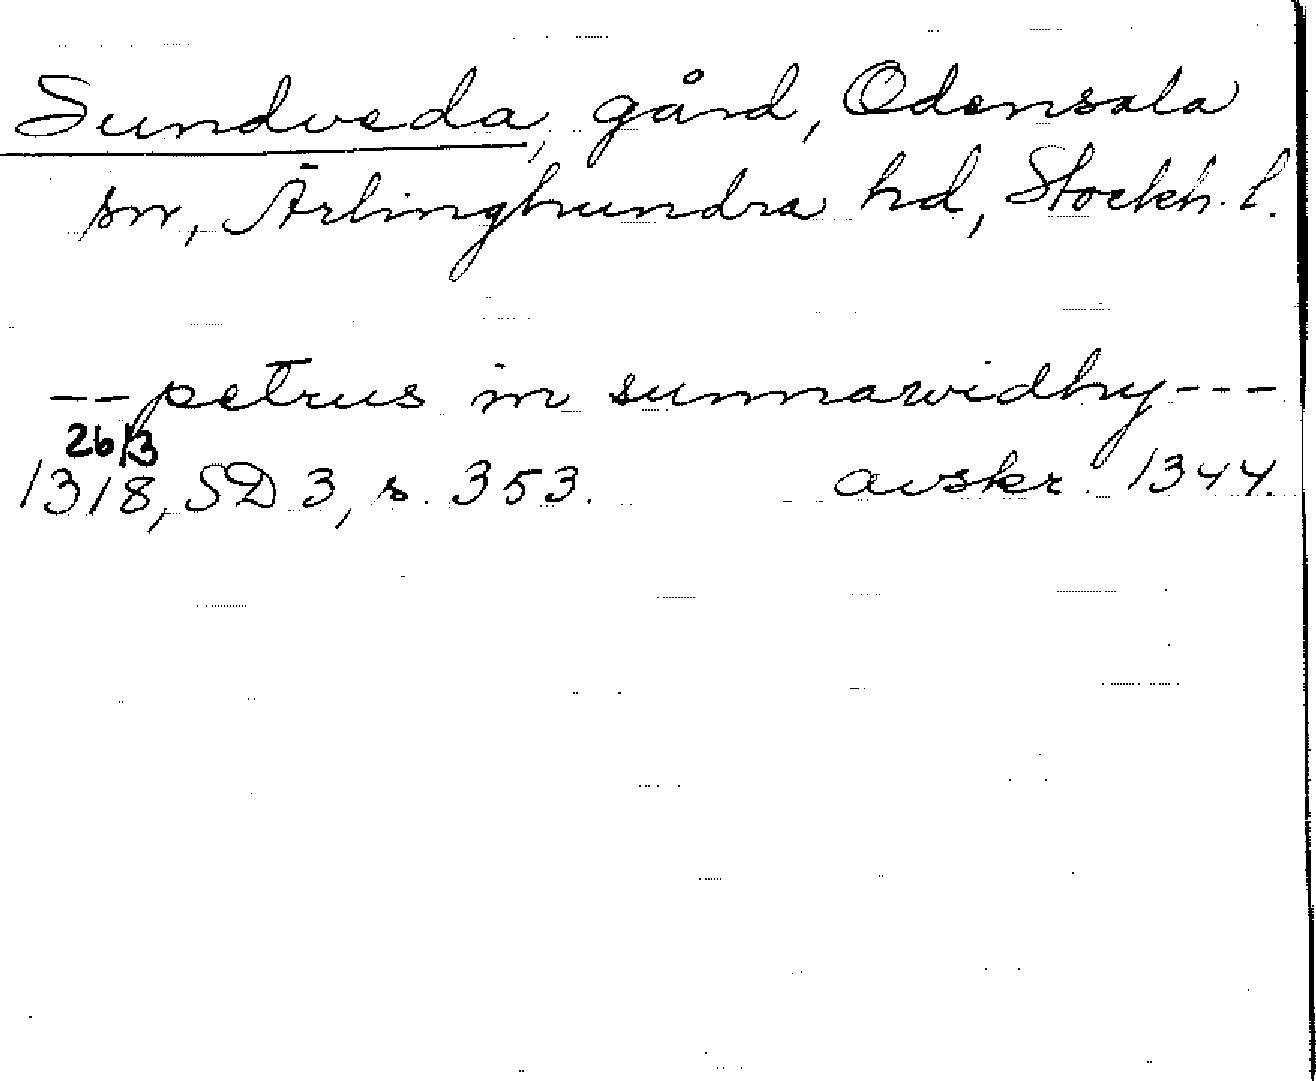 Sundveda, gård, Odensala
sn, Ärlinghundra hd, Stockh. l.
-- petrus in sunnarwidhy ---
26/3
1318, SD 3, s. 353. avskr. 1344.